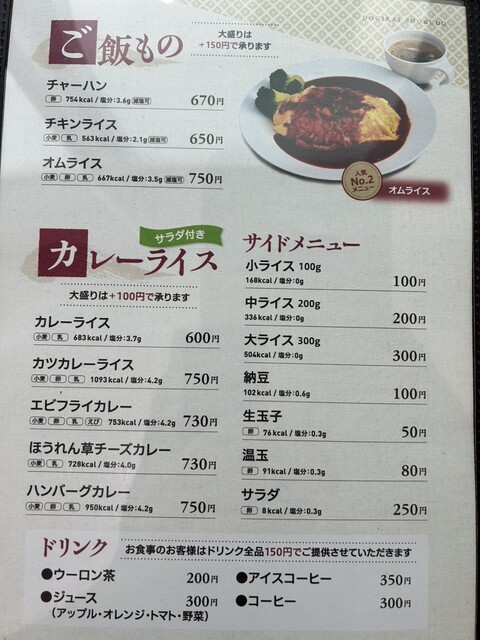 DOGIKAI SHOKUDO
ご飯もの
大盛りは
+150円で承ります
チャーハン
卵 754kcal / 塩分:3.6g 減塩可 670円
チキンライス
小麦 乳 563kcal / 塩分:2.1g 減塩可 650円
オムライス
小麦 卵 乳 667kcal / 塩分:3.5g 減塩可 750円
人気
No.2
メニュー
オムライス
サラダ付き
カレーライス
大盛りは+100円で承ります
カレーライス
小麦 乳 683kcal / 塩分:3.7g 600円
カツカレーライス
小麦 卵 乳 1093kcal / 塩分:4.2g 750円
エビフライカレー
小麦 卵 乳 えび 753kcal / 塩分:4.2g 730円
ほうれん草チーズカレー
小麦 乳 728kcal / 塩分:4.0g 730円
ハンバーグカレー
小麦 卵 乳 950kcal / 塩分:4.2g 750円
サイドメニュー
小ライス 100g
168kcal / 塩分:0g 100円
中ライス 200g
336kcal / 塩分:0g 200円
大ライス 300g
504kcal / 塩分:0g 300円
納豆
102kcal / 塩分:0.6g 100円
生玉子
卵 76kcal / 塩分:0.3g 50円
温玉
卵 91kcal / 塩分:0.3g 80円
サラダ
卵 8kcal / 塩分:0.3g 250円
ドリンク
お食事のお客様はドリンク全品150円でご提供させていただきます
●ウーロン茶 200円
●ジュース 300円
(アップル・オレンジ・トマト・野菜)
●アイスコーヒー 350円
●コーヒー 300円